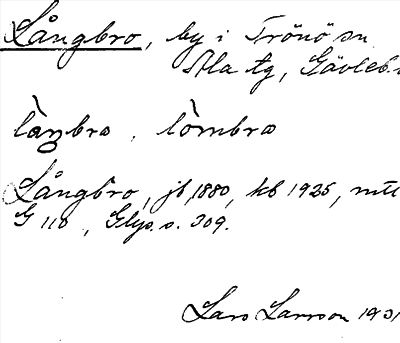 Långbro, by i Trönö sn
Ala tg, Gävleb.
làŋbro, lòmbro
Långbro, jb 1880, kb 1925, mtl
G 110, Glys. s. 309.
Lars Larsson 1931